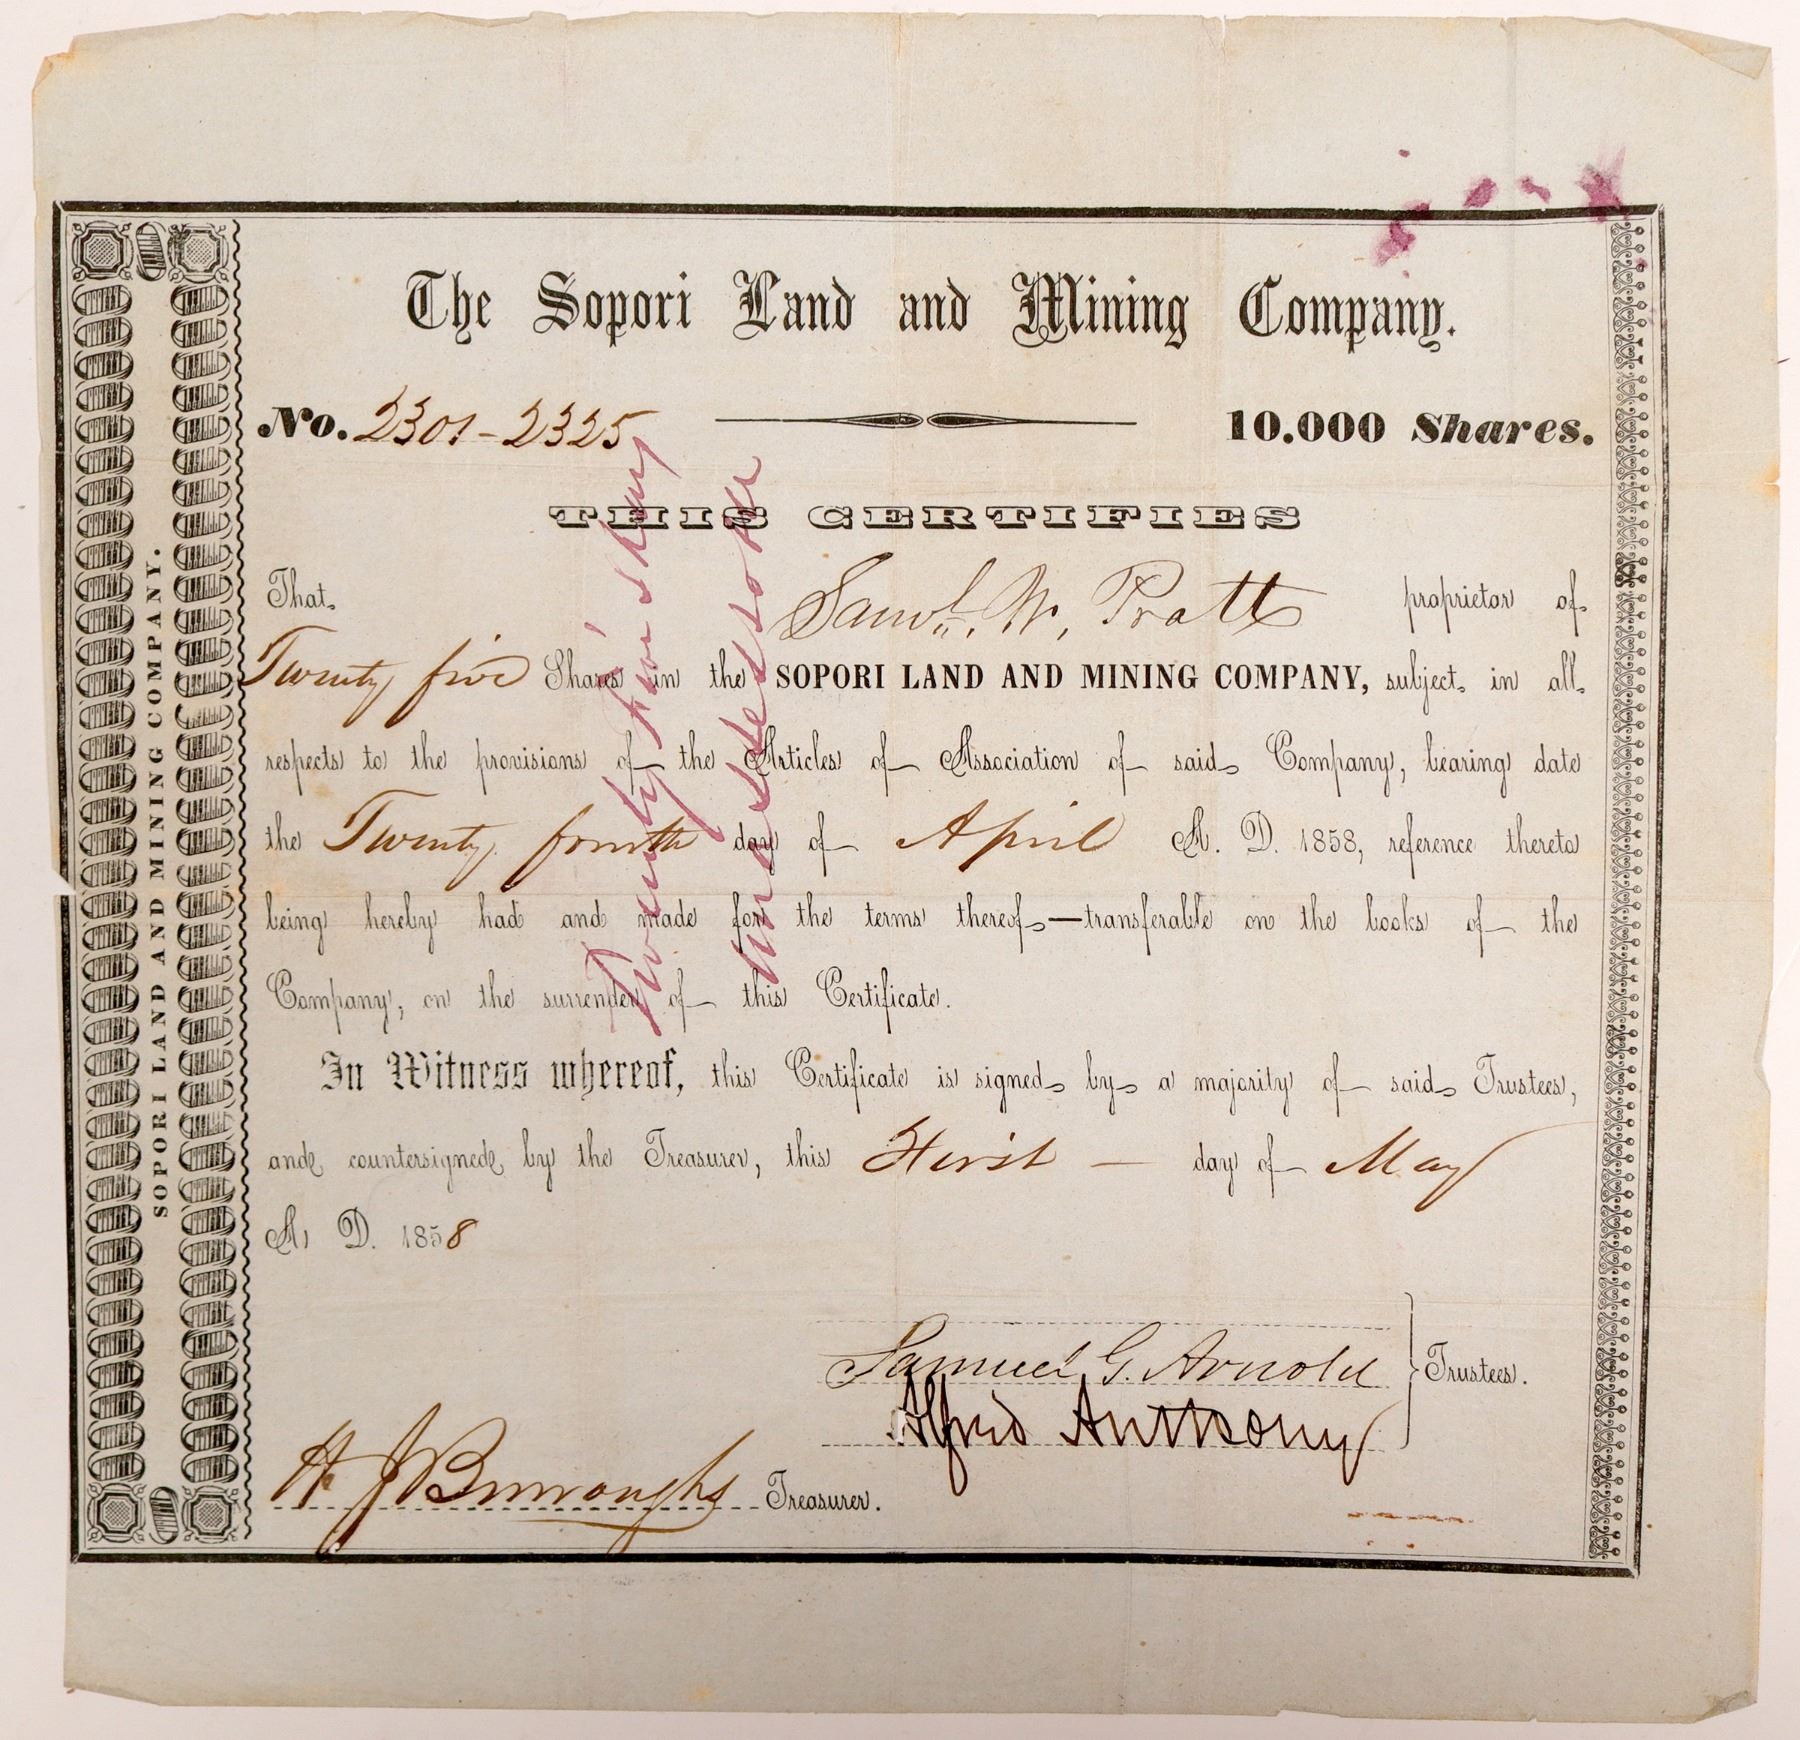 The Sopori Land and Mining Company.
No. 2301-2325
10.000 Shares.
THIS CERTIFIES
That Saml. W. Pratt proprietor of
Twenty five Shares in the SOPORI LAND AND MINING COMPANY, subject in all
respects to the provisions of the Articles of Association of said Company, bearing date
the Twenty fourth day of April A. D. 1858, reference thereto
being hereby had and made for the terms thereof—transferable on the books of the
Company, on the surrender of this Certificate.
In Witness whereof, this Certificate is signed by a majority of said Trustees,
and countersigned by the Treasurer, this First — day of May
A. D. 1858
Samuel G. Arnold
Alfred Anthony
Trustees.
H J Burroughs Treasurer.
SOPORI LAND AND MINING COMPANY.
Twenty five